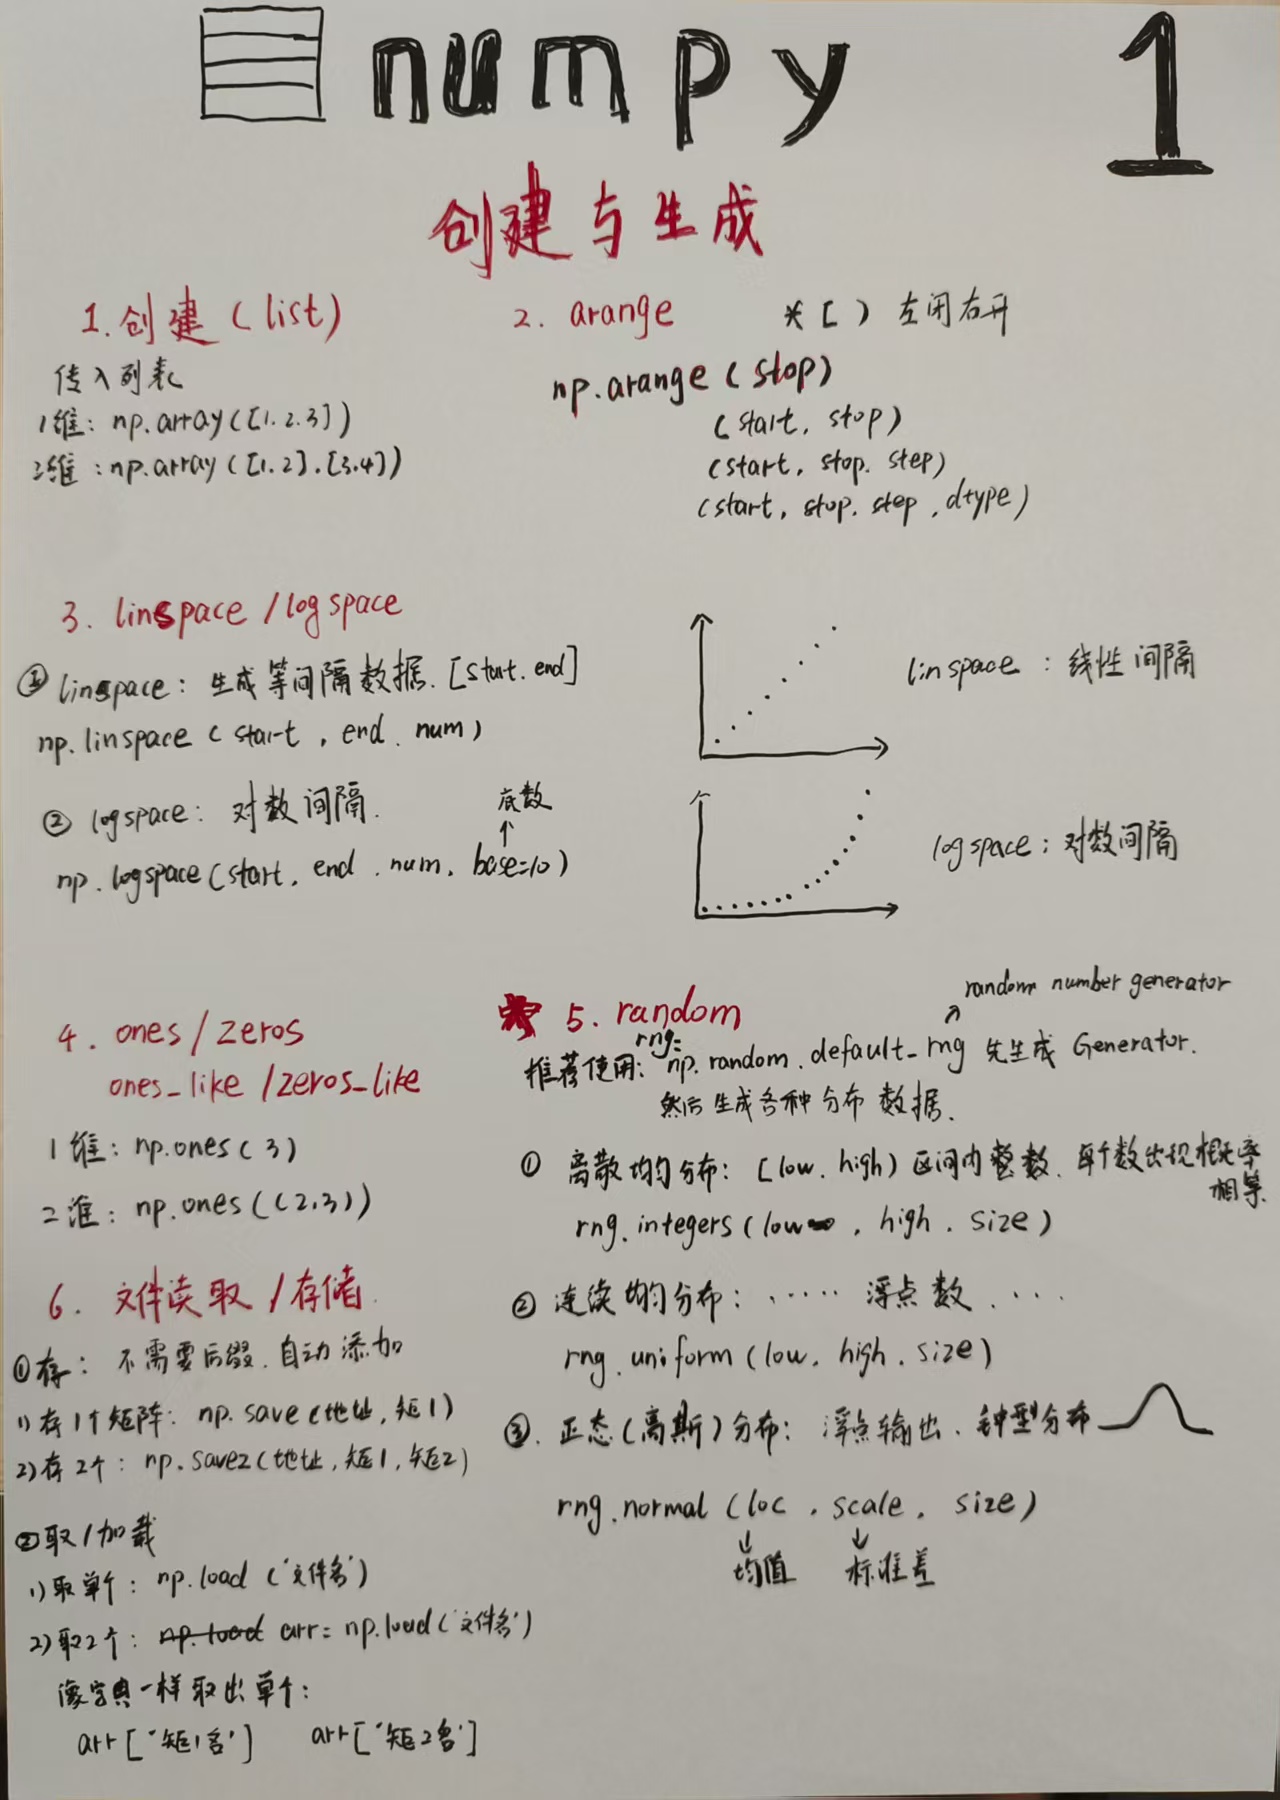 numpy 1
创建与生成
1. 创建 (list)
传入列表
1维: np.array([1.2.3])
2维: np.array([1.2].[3.4])
2. arange * [ ) 左闭右开
np.arange (stop)
(start, stop)
(start, stop. step)
(start, stop. step, dtype)
3. linspace / logspace
① linspace: 生成等间隔数据. [start. end]
np.linspace (start, end. num)
② logspace: 对数间隔.
底数
np.logspace(start, end. num, base=10)
linspace: 线性间隔
logspace: 对数间隔
4. ones / zeros
ones_like / zeros_like
1维: np.ones(3)
二维: np.ones((2,3))
5. random
random number generator
rng=
推荐使用: np.random.default_rng 先生成 Generator.
然后生成各种分布数据.
① 离散均匀分布: [low. high) 区间内整数. 每个数出现概率
相等.
rng.integers (low, high. size)
② 连续均匀分布: ..... 浮点数. ...
rng.uniform (low. high. size)
③. 正态(高斯)分布: 浮点输出. 钟型分布
rng.normal (loc, scale, size)
均值 标准差
6. 文件读取 / 存储.
①存: 不需要后缀.自动添加
1)存1个矩阵: np.save(地址,矩1)
2)存2个: np.savez(地址,矩1,矩2)
②取/加载
1)取单个: np.load ('文件名')
2)取2个: np.load arr= np.load('文件名')
像字典一样取出单个:
arr['矩1名'] arr['矩2名']